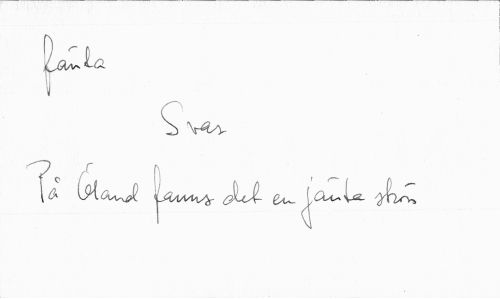 jänta
Svar
På Öland fanns det en jänta strös